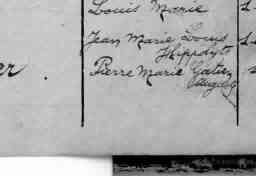 Louis Marie
Jean Marie Louis
Hippolyte
er.
Pierre Marie Gatien